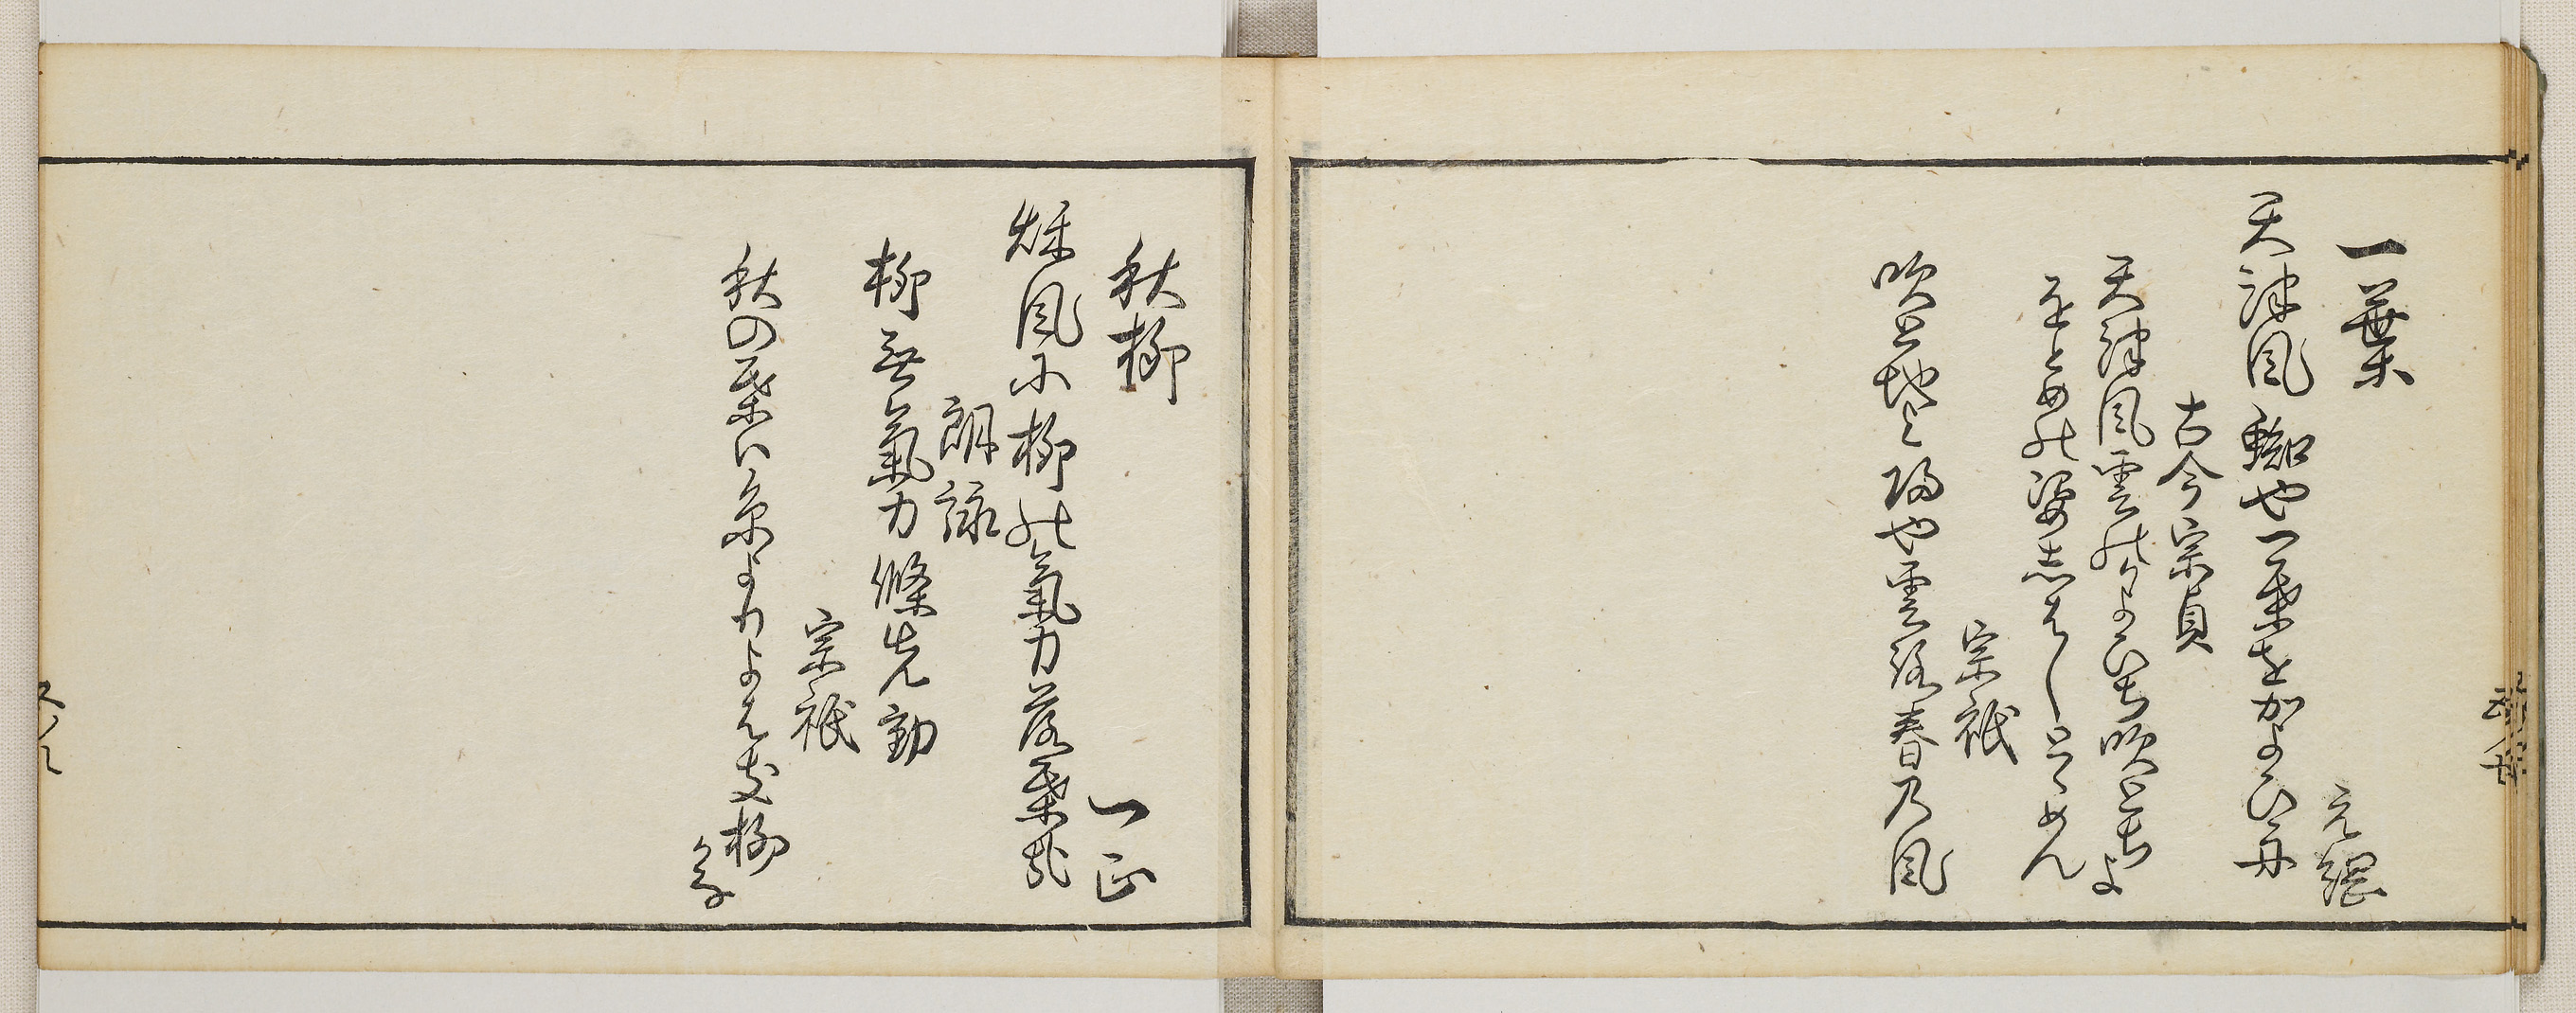 一葉
元綱
天津風蜘や一葉をかよひ舟
古今 宗貞
天津風雲のかよひち吹とちよ
をとめの姿しはしとゝめん
宗祇
吹とちよ 也雲路春乃風
秋柳
一正
秋風に柳の氣力落葉哉
朗詠
柳無氣力條先動
宗祇
秋の葉は糸よりよはき柳
かな